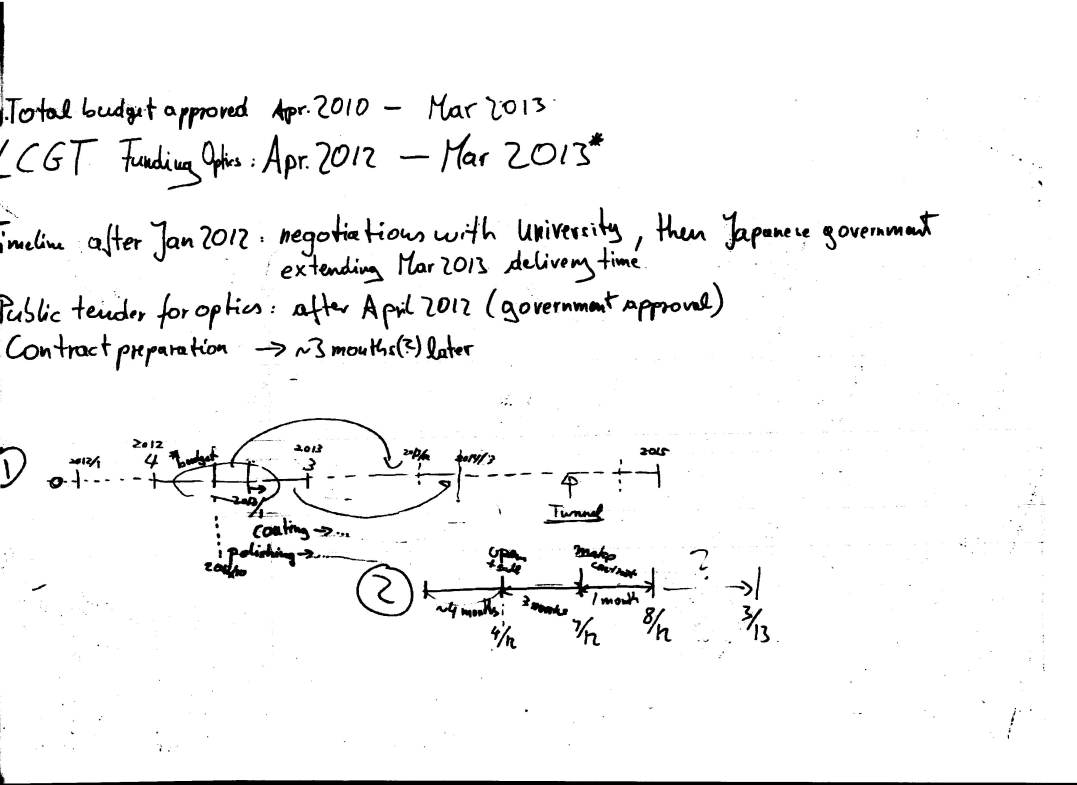 Total budget approved Apr. 2010 – Mar 2013
LCGT Funding Optics: Apr. 2012 – Mar 2013*
Timeline after Jan 2012: negotiations with University, then Japanese government
extending Mar 2013 delivery time.
Public tender for optics: after April 2012 (government approval)
Contract preparation → ~3 months(?) later
1
2012/1
2012
4
*budget
2013
3
2014/3
2015
2013/1
Tunnel
coating → ...
polishing → ......
2
open
make
contract
~4 months
3 months
1 month
?
4/12
7/12
8/12
3/13